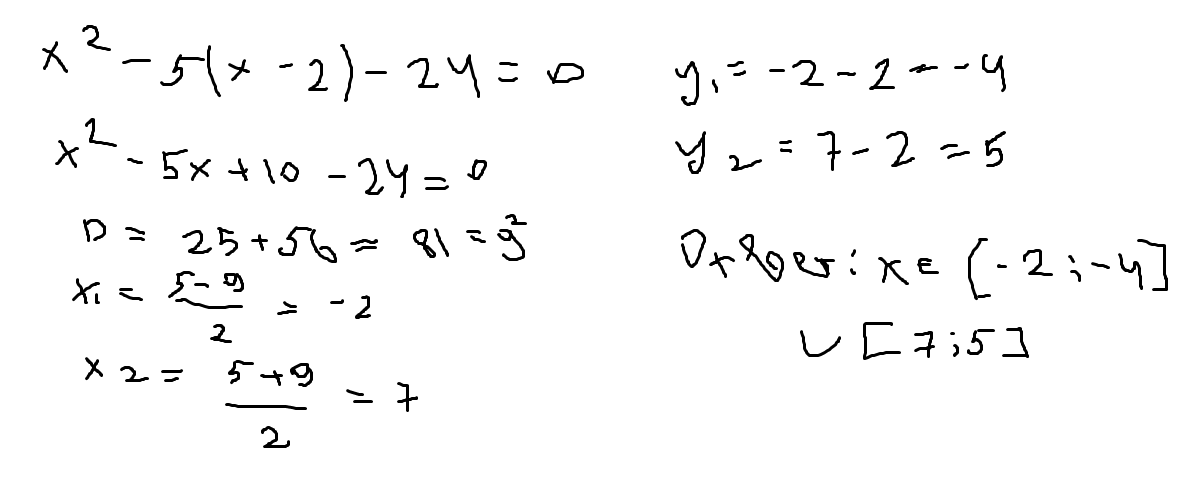 x² - 5(x - 2) - 24 = 0
x² - 5x + 10 - 24 = 0
D = 25 + 56 = 81 = 9²
x₁ = (5 - 9)/2 = -2
x₂ = (5 + 9)/2 = 7
y₁ = -2 - 2 = -4
y₂ = 7 - 2 = 5
: x ∈ [-2; -4]
∪ [7; 5]